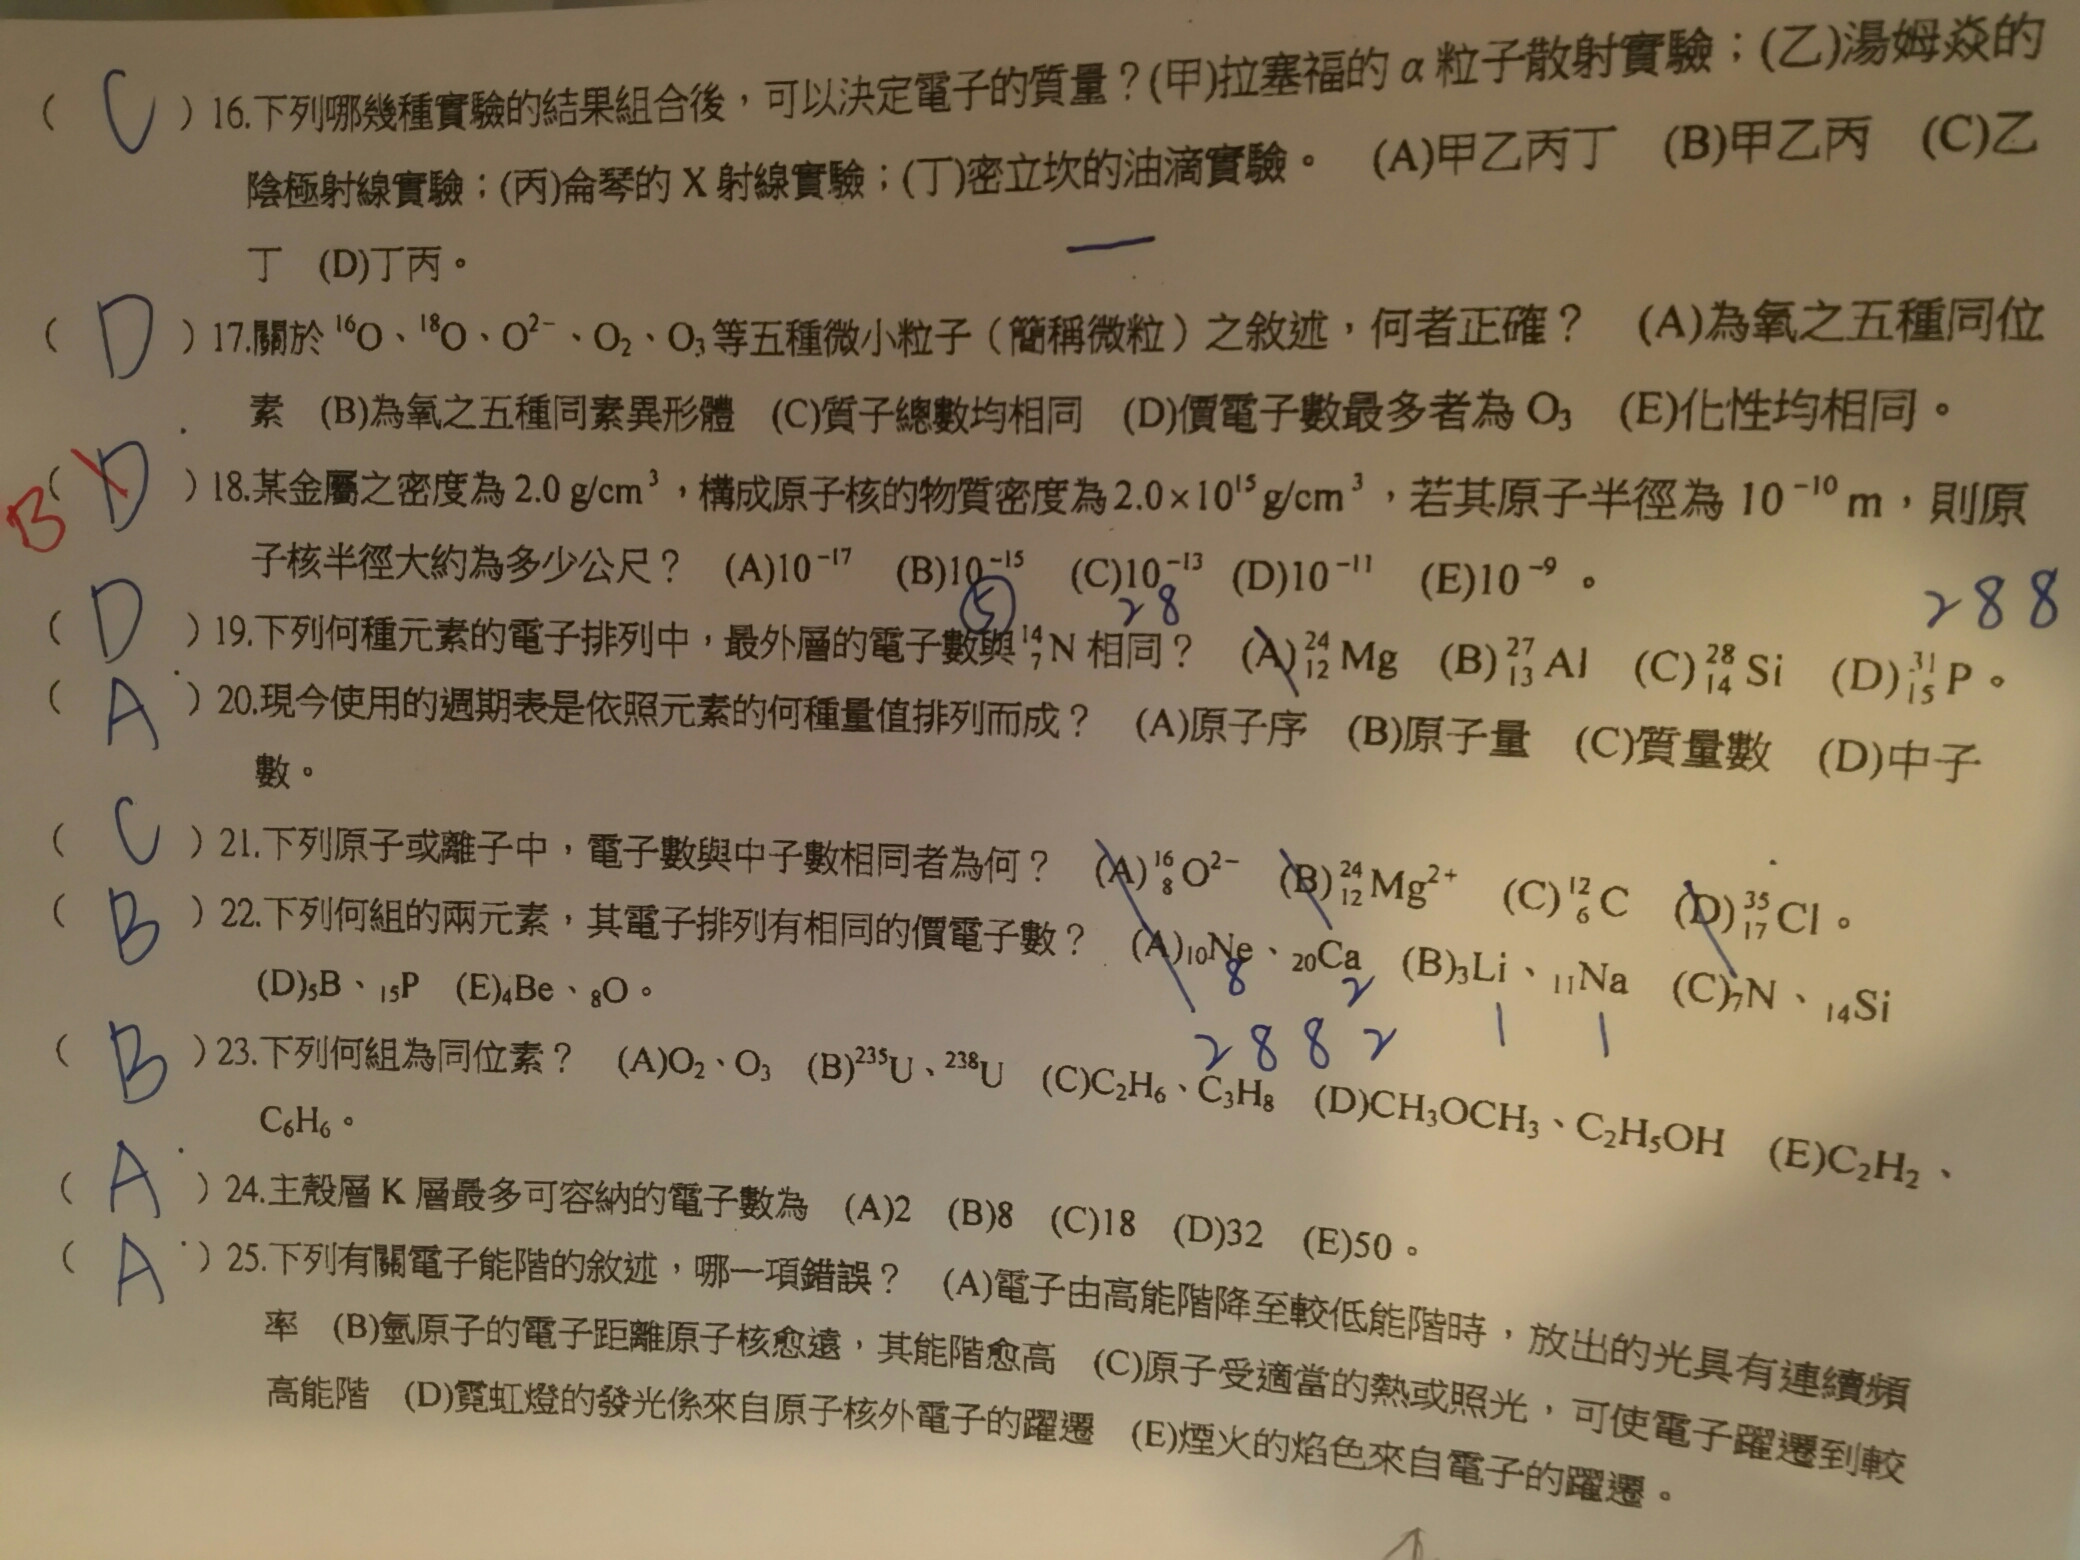 ( C ) 16.下列哪幾種實驗的結果組合後，可以決定電子的質量？(甲)拉塞福的 α 粒子散射實驗；(乙)湯姆焱的
陰極射線實驗；(丙)侖琴的 X 射線實驗；(丁)密立坎的油滴實驗。 (A)甲乙丙丁 (B)甲乙丙 (C)乙
丁 (D)丁丙。
( D ) 17.關於 ¹⁶O、¹⁸O、O²⁻、O₂、O₃等五種微小粒子（簡稱微粒）之敘述，何者正確？ (A)為氧之五種同位
素 (B)為氧之五種同素異形體 (C)質子總數均相同 (D)價電子數最多者為 O₃ (E)化性均相同。
B ( D ) 18.某金屬之密度為 2.0 g/cm³，構成原子核的物質密度為2.0×10¹⁵g/cm³，若其原子半徑為 10⁻¹⁰ m，則原
子核半徑大約為多少公尺？ (A)10⁻¹⁷ (B)10⁻¹⁵ (C)10⁻¹³ (D)10⁻¹¹ (E)10⁻⁹。
5 2 8 2 8 8
( D ) 19.下列何種元素的電子排列中，最外層的電子數與 ¹⁴₇N 相同？ (A)²⁴₁₂Mg (B)²⁷₁₃Al (C)²⁸₁₄Si (D)³¹₁₅P。
( A ) 20.現今使用的週期表是依照元素的何種量值排列而成？ (A)原子序 (B)原子量 (C)質量數 (D)中子
數。
( C ) 21.下列原子或離子中，電子數與中子數相同者為何？ (A)¹⁶₈O²⁻ (B)²⁴₁₂Mg²⁺ (C)¹²₆C (D)³⁵₁₇Cl。
( B ) 22.下列何組的兩元素，其電子排列有相同的價電子數？ (A)₁₀Ne、₂₀Ca (B)₃Li、₁₁Na (C)₇N、₁₄Si
8 2
(D)₅B、₁₅P (E)₄Be、₈O。
2 8 8 2 1 1
( B ) 23.下列何組為同位素？ (A)O₂、O₃ (B)²³⁵U、²³⁸U (C)C₂H₆、C₃H₈ (D)CH₃OCH₃、C₂H₅OH (E)C₂H₂、
C₆H₆。
( A ) 24.主殼層 K 層最多可容納的電子數為 (A)2 (B)8 (C)18 (D)32 (E)50。
( A ) 25.下列有關電子能階的敘述，哪一項錯誤？ (A)電子由高能階降至較低能階時，放出的光具有連續頻
率 (B)氫原子的電子距離原子核愈遠，其能階愈高 (C)原子受適當的熱或照光，可使電子躍遷到較
高能階 (D)霓虹燈的發光係來自原子核外電子的躍遷 (E)煙火的焰色來自電子的躍遷。